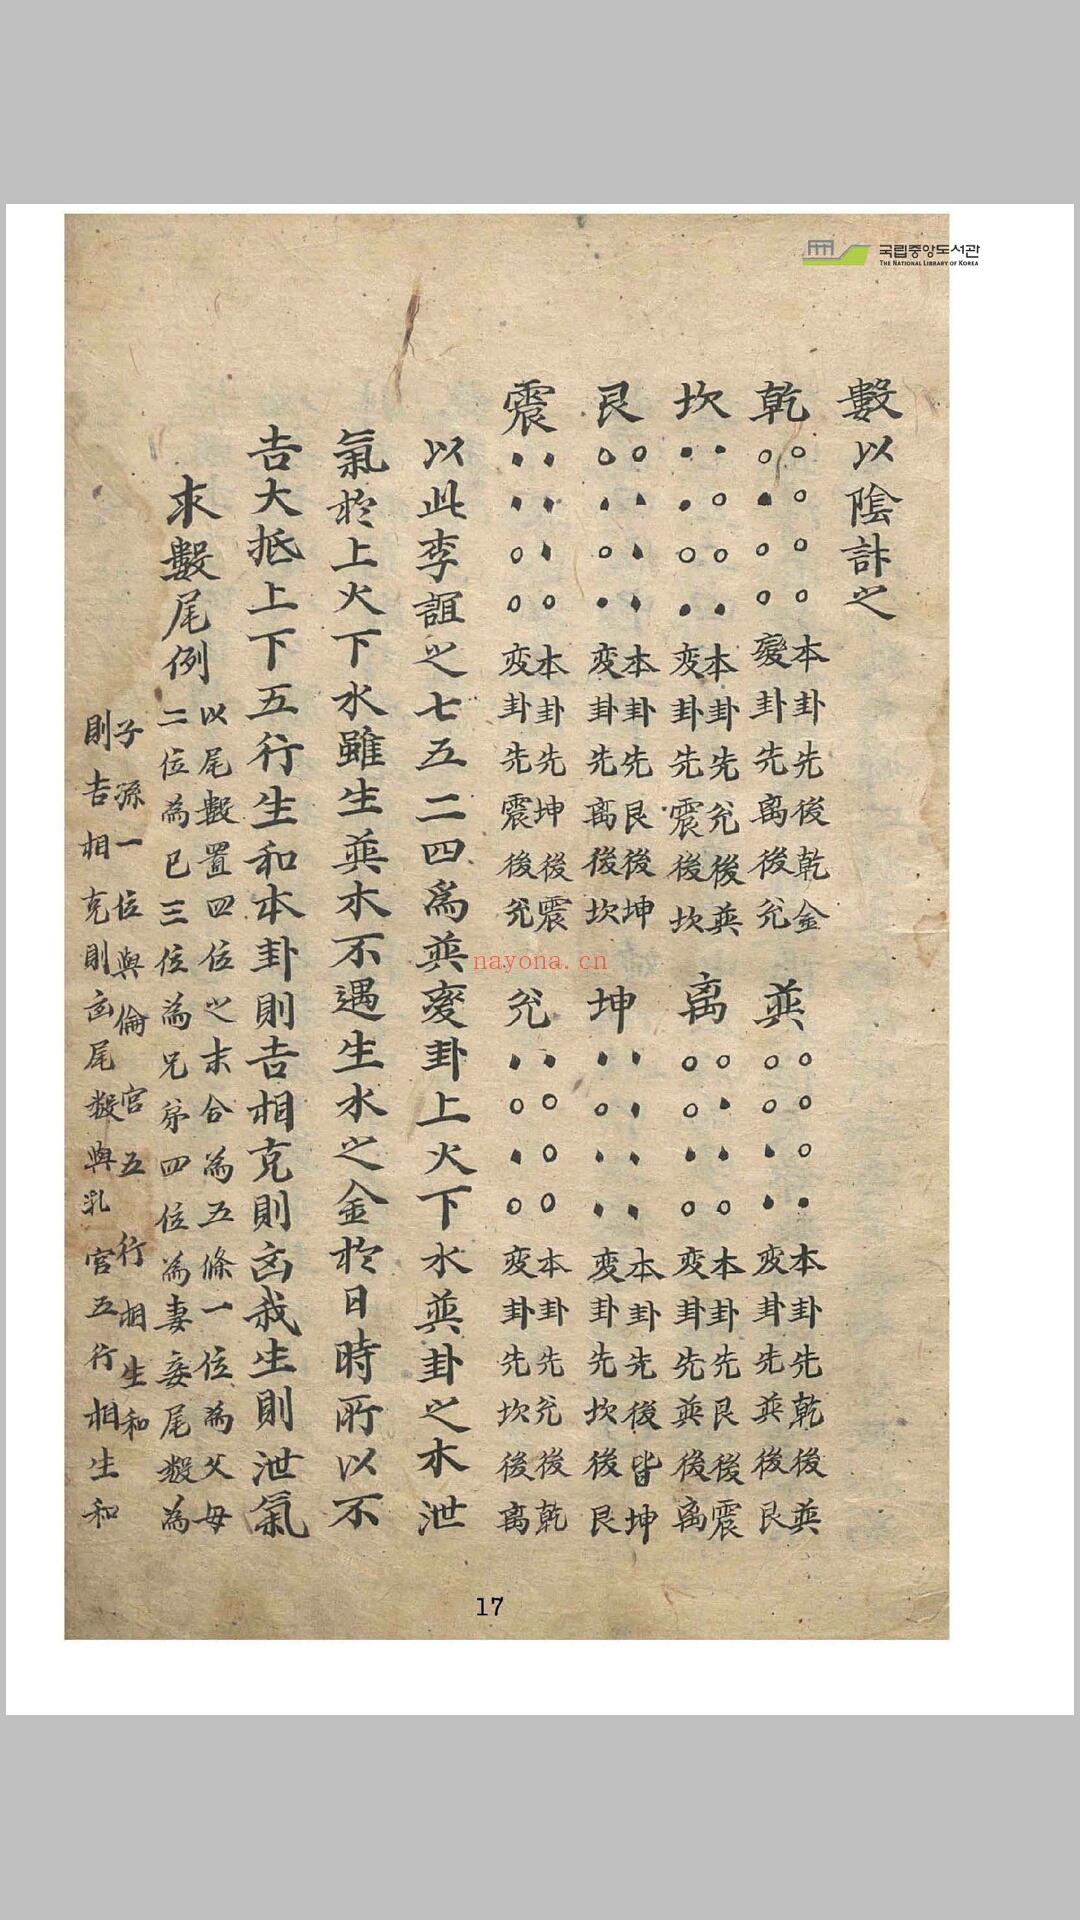 국립중앙도서관
THE NATIONAL LIBRARY OF KOREA
數以陰訃之
乾 本卦先後乾金
變卦先离後兊
巽 本卦先乾後巽
変卦先巽後艮
坎 本卦先兊後巽
変卦先震後坎
离 本卦先艮後震
変卦先巽後离
艮 本卦先艮後坤
変卦先离後坎
坤 本卦先後皆坤
変卦先坎後艮
震 本卦先坤後震
変卦先震後兊
兊 本卦先兊後乾
変卦先坎後离
以此李誼之七五二四爲巽變卦上火下水巽卦之木泄
氣於上火下水雖生巽木不遇生水之金於日時所以不
吉大抵上下五行生和本卦則吉相克則凶我生則泄氣
求數尾例
以尾數置四位之末合為五條一位為父母
二位為已三位為兄弟四位為妻妾尾數為
子孫一位與倫官五行相生和
則吉相克則凶尾數與乳官五行相生和
nayona.cn
17